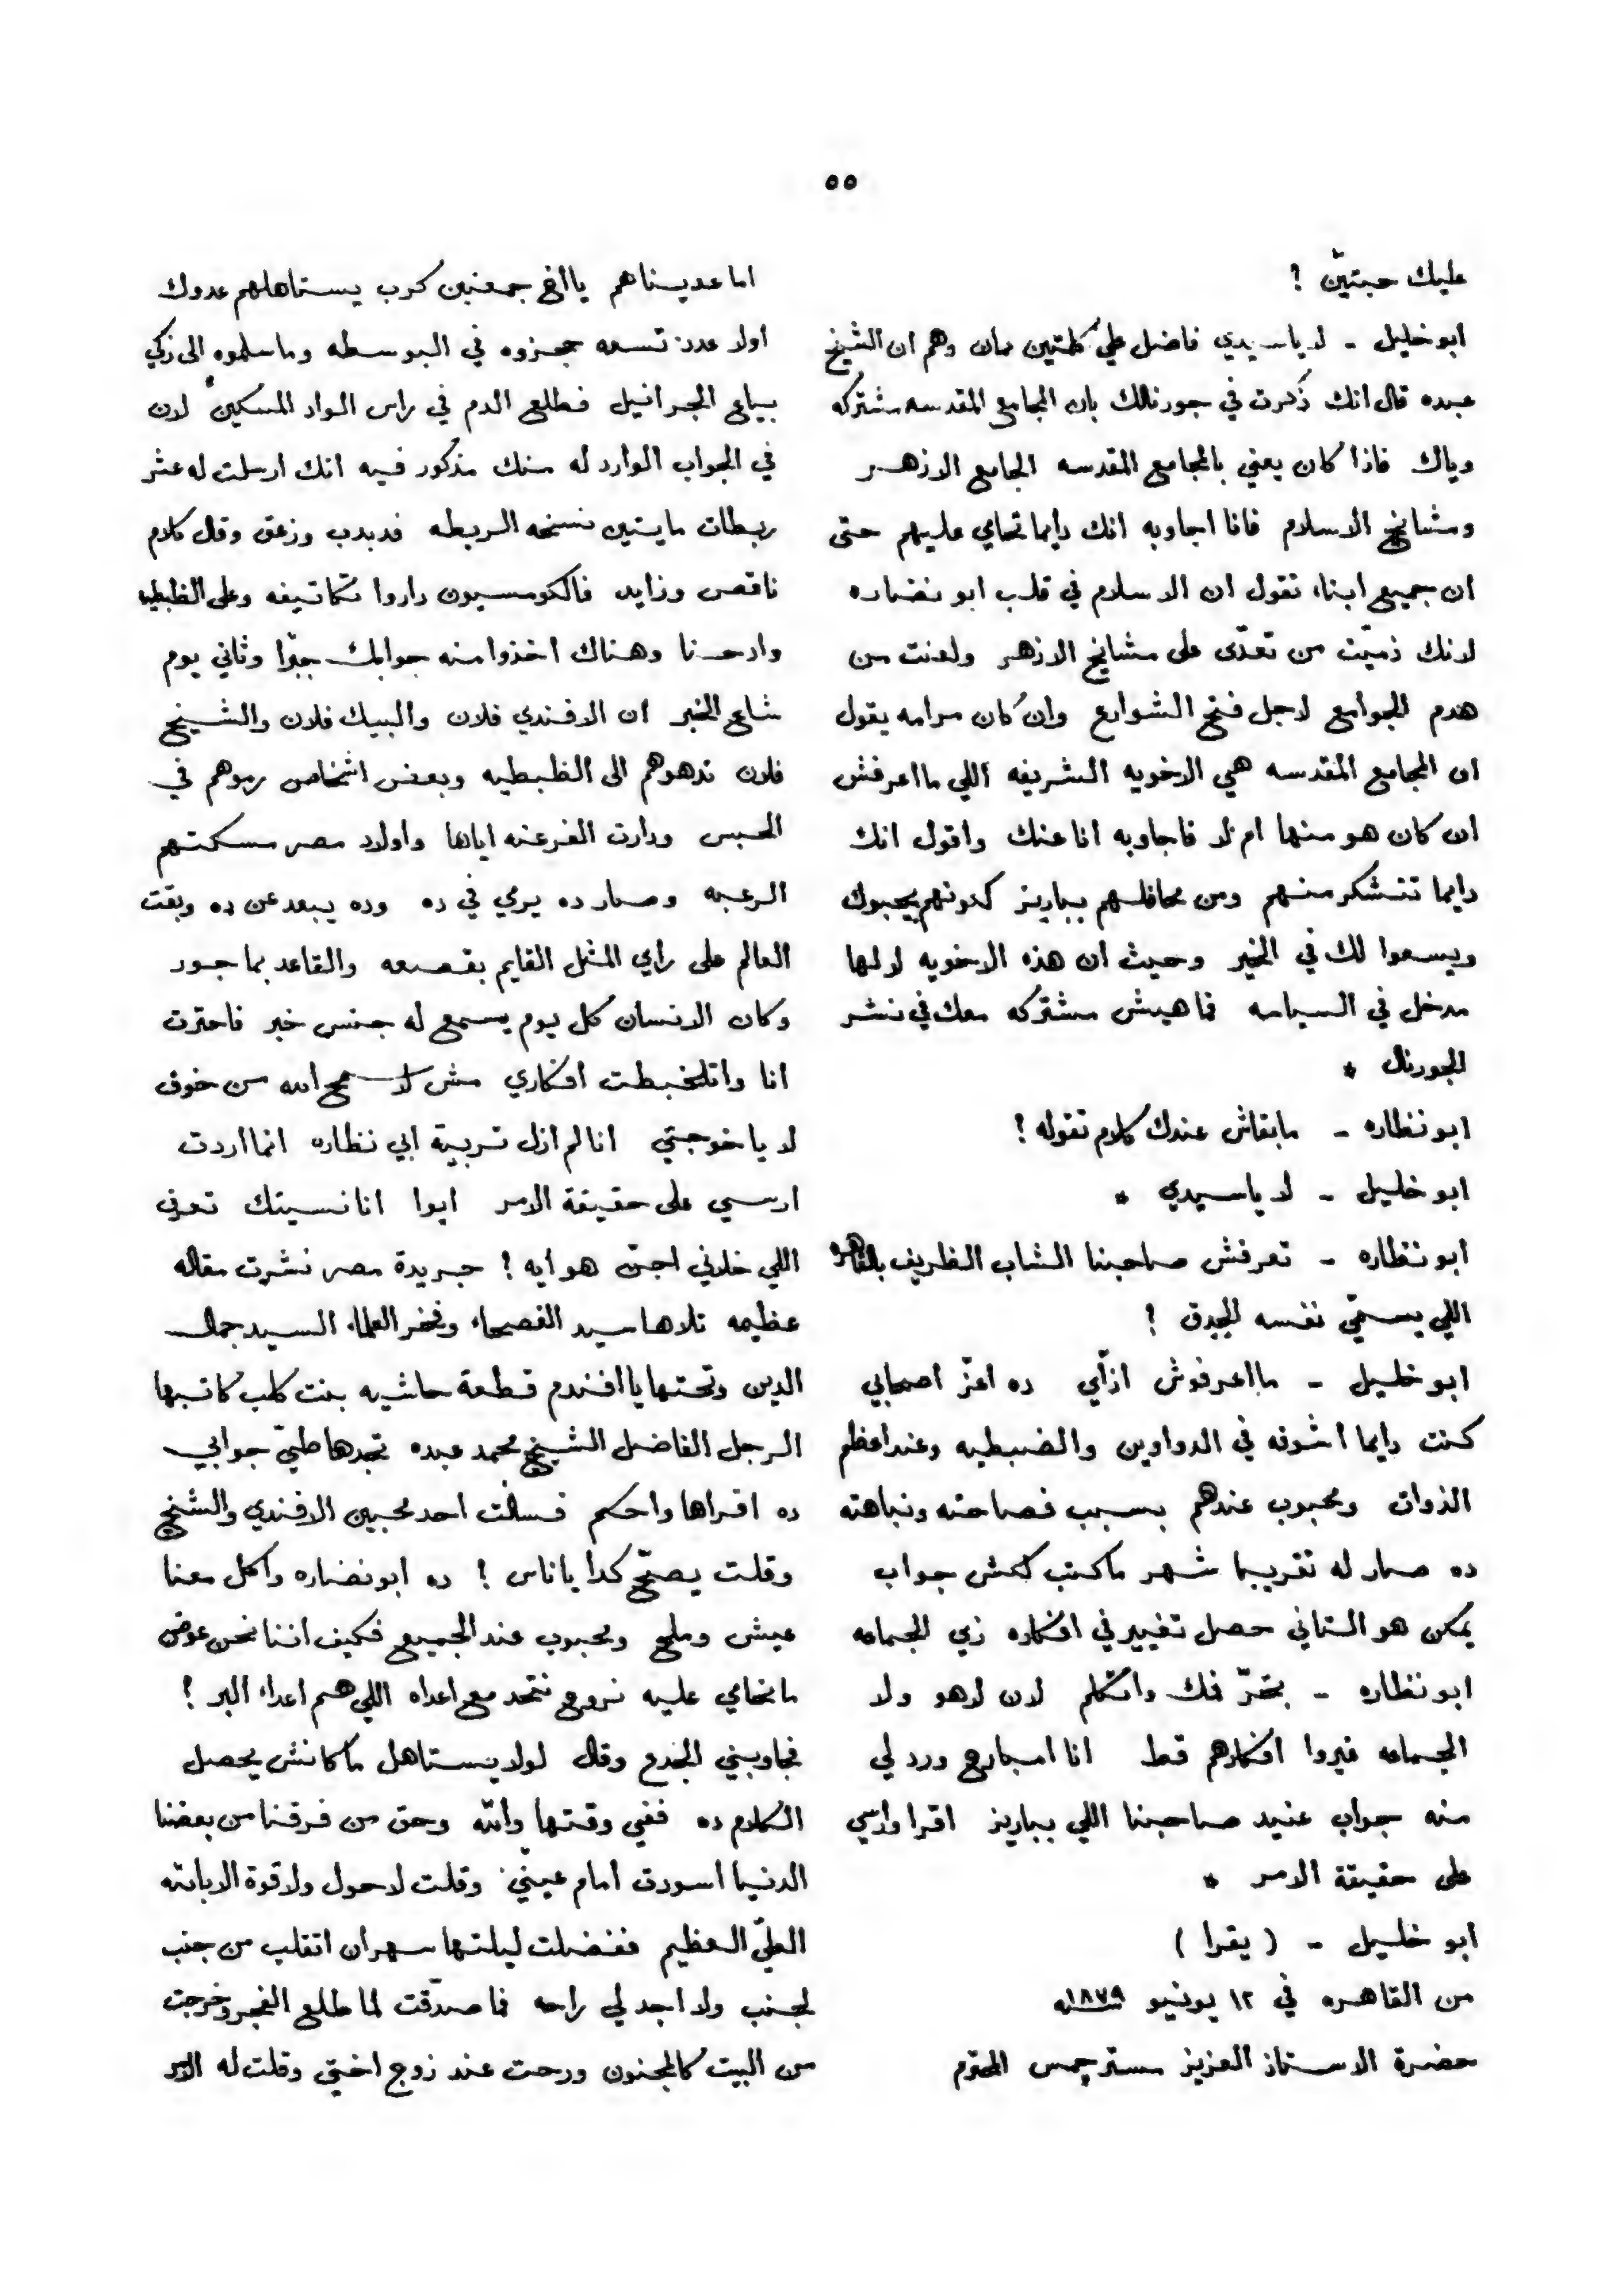 ٥٥
عليك حبتين ؟
ابو خليل - لا ياسيدي فاضل علي كلمتين كمان وهم ان الشيخ
عبده قال انك ذكرت في جورنالك بان المجامع المقدسه مشتركه
وياك فاذا كان يعني بالمجامع المقدسه الجامع الازهر
ومشايخ الاسلام فانا اجاوبه انك دايما تحامي عليهم حتى
ان جميع ابناء تقول ان الاسلام في قلب ابو نضاره
لانك ذميّت من تعدّى على مشايخ الازهر ولعنت من
هدم الجوامع لاجل فتح الشوارع وان كان مرامه يقول
ان المجامع المقدسه هي الاخويه الشريفه اللي ما اعرفش
ان كان هو منها ام لا فاجاوبه انا عنك واقول انك
دايما تتشكر منهم ومن محافلهم بباريز كونهم يحبوك
ويسعوا لك في الخير وحيث ان هذه الاخويه لا لها
مدخل في السياسه فما هيش مشتركه معك في نشر
الجورنال *
ابو نظاره - ما بقاش عندك كلام تقوله ؟
ابو خليل - لا ياسيدي *
ابو نظاره - تعرفش صاحبنا الشاب الظريف بالقاهره
اللي يسمّي نفسه الجدق ؟
ابو خليل - ما اعرفوش ازّاي ده اعزّ اصحابي
كنت دايما اشوفه في الدواوين والضبطيه وعند اعظم
الذوات ومحبوب عندهم بسبب فصاحته ونباهته
ده صار له تقريبا شهر ما كتب لكش جواب
يمكن هو التاني حصل تغيير في افكاره زي الجماعه
ابو نظاره - بخّر فمك واتكلم لان لا هو ولا
الجماعه غيروا افكارهم قط انا امبارح ورد لي
منه جواب عنيد صاحبنا اللي بباريز اقرا وارسي
على حقيقة الامر *
ابو خليل - ( يقرا )
من القاهره في ١٢ يونيو سنه ١٨٧٩
حضرة الاستاذ العزيز مستر جمس المحترم
اما عديناهم يا اخ جمعتين كرب يستاهلهم عدوك
اولا عدد تسعه حجزوه في البوسطه وما سلموه الى زكي
بياع الجرانيل فطلع الدم في راس الواد المسكين لان
في الجواب الوارد له منك مذكور فيه انك ارسلت له عشر
ربطات مايتين نسخه الربطه فدبدب وزعق وقال كلام
ناقص وزايد فالكومسيون داروا تكاتيفه وعلى الظبطيه
وادحنا وهناك اخذوا منه جوابك جبرًا وثاني يوم
شاع الخبر ان الافندي فلان والبيك فلان والشيخ
فلان ندهوهم الى الظبطيه وبعض اشخاص رموهم في
الحبس ودارت الفرعنه اياها واولاد مصر مسكتهم
الرعبه وصار ده يرمي في ده وده يبعد عن ده وبقت
العالم على راي المثل القايم بقصعه والقاعد بماجور
وكان الانسان كل يوم يسمع له جنس خبر فاحترت
انا واتلخبطت افكاري مش لا سمح الله من خوف
لا يا خوجتي انا لم ازل تربية ابي نظاره انما اردت
ارسي على حقيقة الامر ايوا انا نسيتك تعرف
اللي خلاني اجن هو ايه ؟ جريدة مصر نشرت مقاله
عظيمه تلاها سيد الفصحاء وفخر العلماء السيد جمال
الدين وتحتها يا افندم قطعة حاشيه بنت كلب كاتبها
الرجل الفاضل الشيخ محمد عبده تجدها طيّ جوابي
ده اقراها واحكم فسالت احد محبين الافندي والشيخ
وقلت يصحّ كدا يا ناس ؟ ده ابو نضاره واكل معنا
عيش وملح ومحبوب عند الجميع فكيف اننا نحن عوض
ما نحامي عليه نروح نتحد مع اعداه اللي هم اعداء البر ؟
فجاوبني الجدع وقال لولا يستاهل ما كانش يحصل
الكلام ده ففي وقتها والله وحق من فرقنا من بعضنا
الدنيا اسودت امام عينيّ وقلت لا حول ولا قوة الا بالله
العليّ العظيم ففضلت ليلتها سهران اتقلب من جنب
لجنب ولا اجد لي راحه فما صدّقت لما طلع الفجر وخرجت
من البيت كالمجنون ورحت عند زوج اختي وقلت له